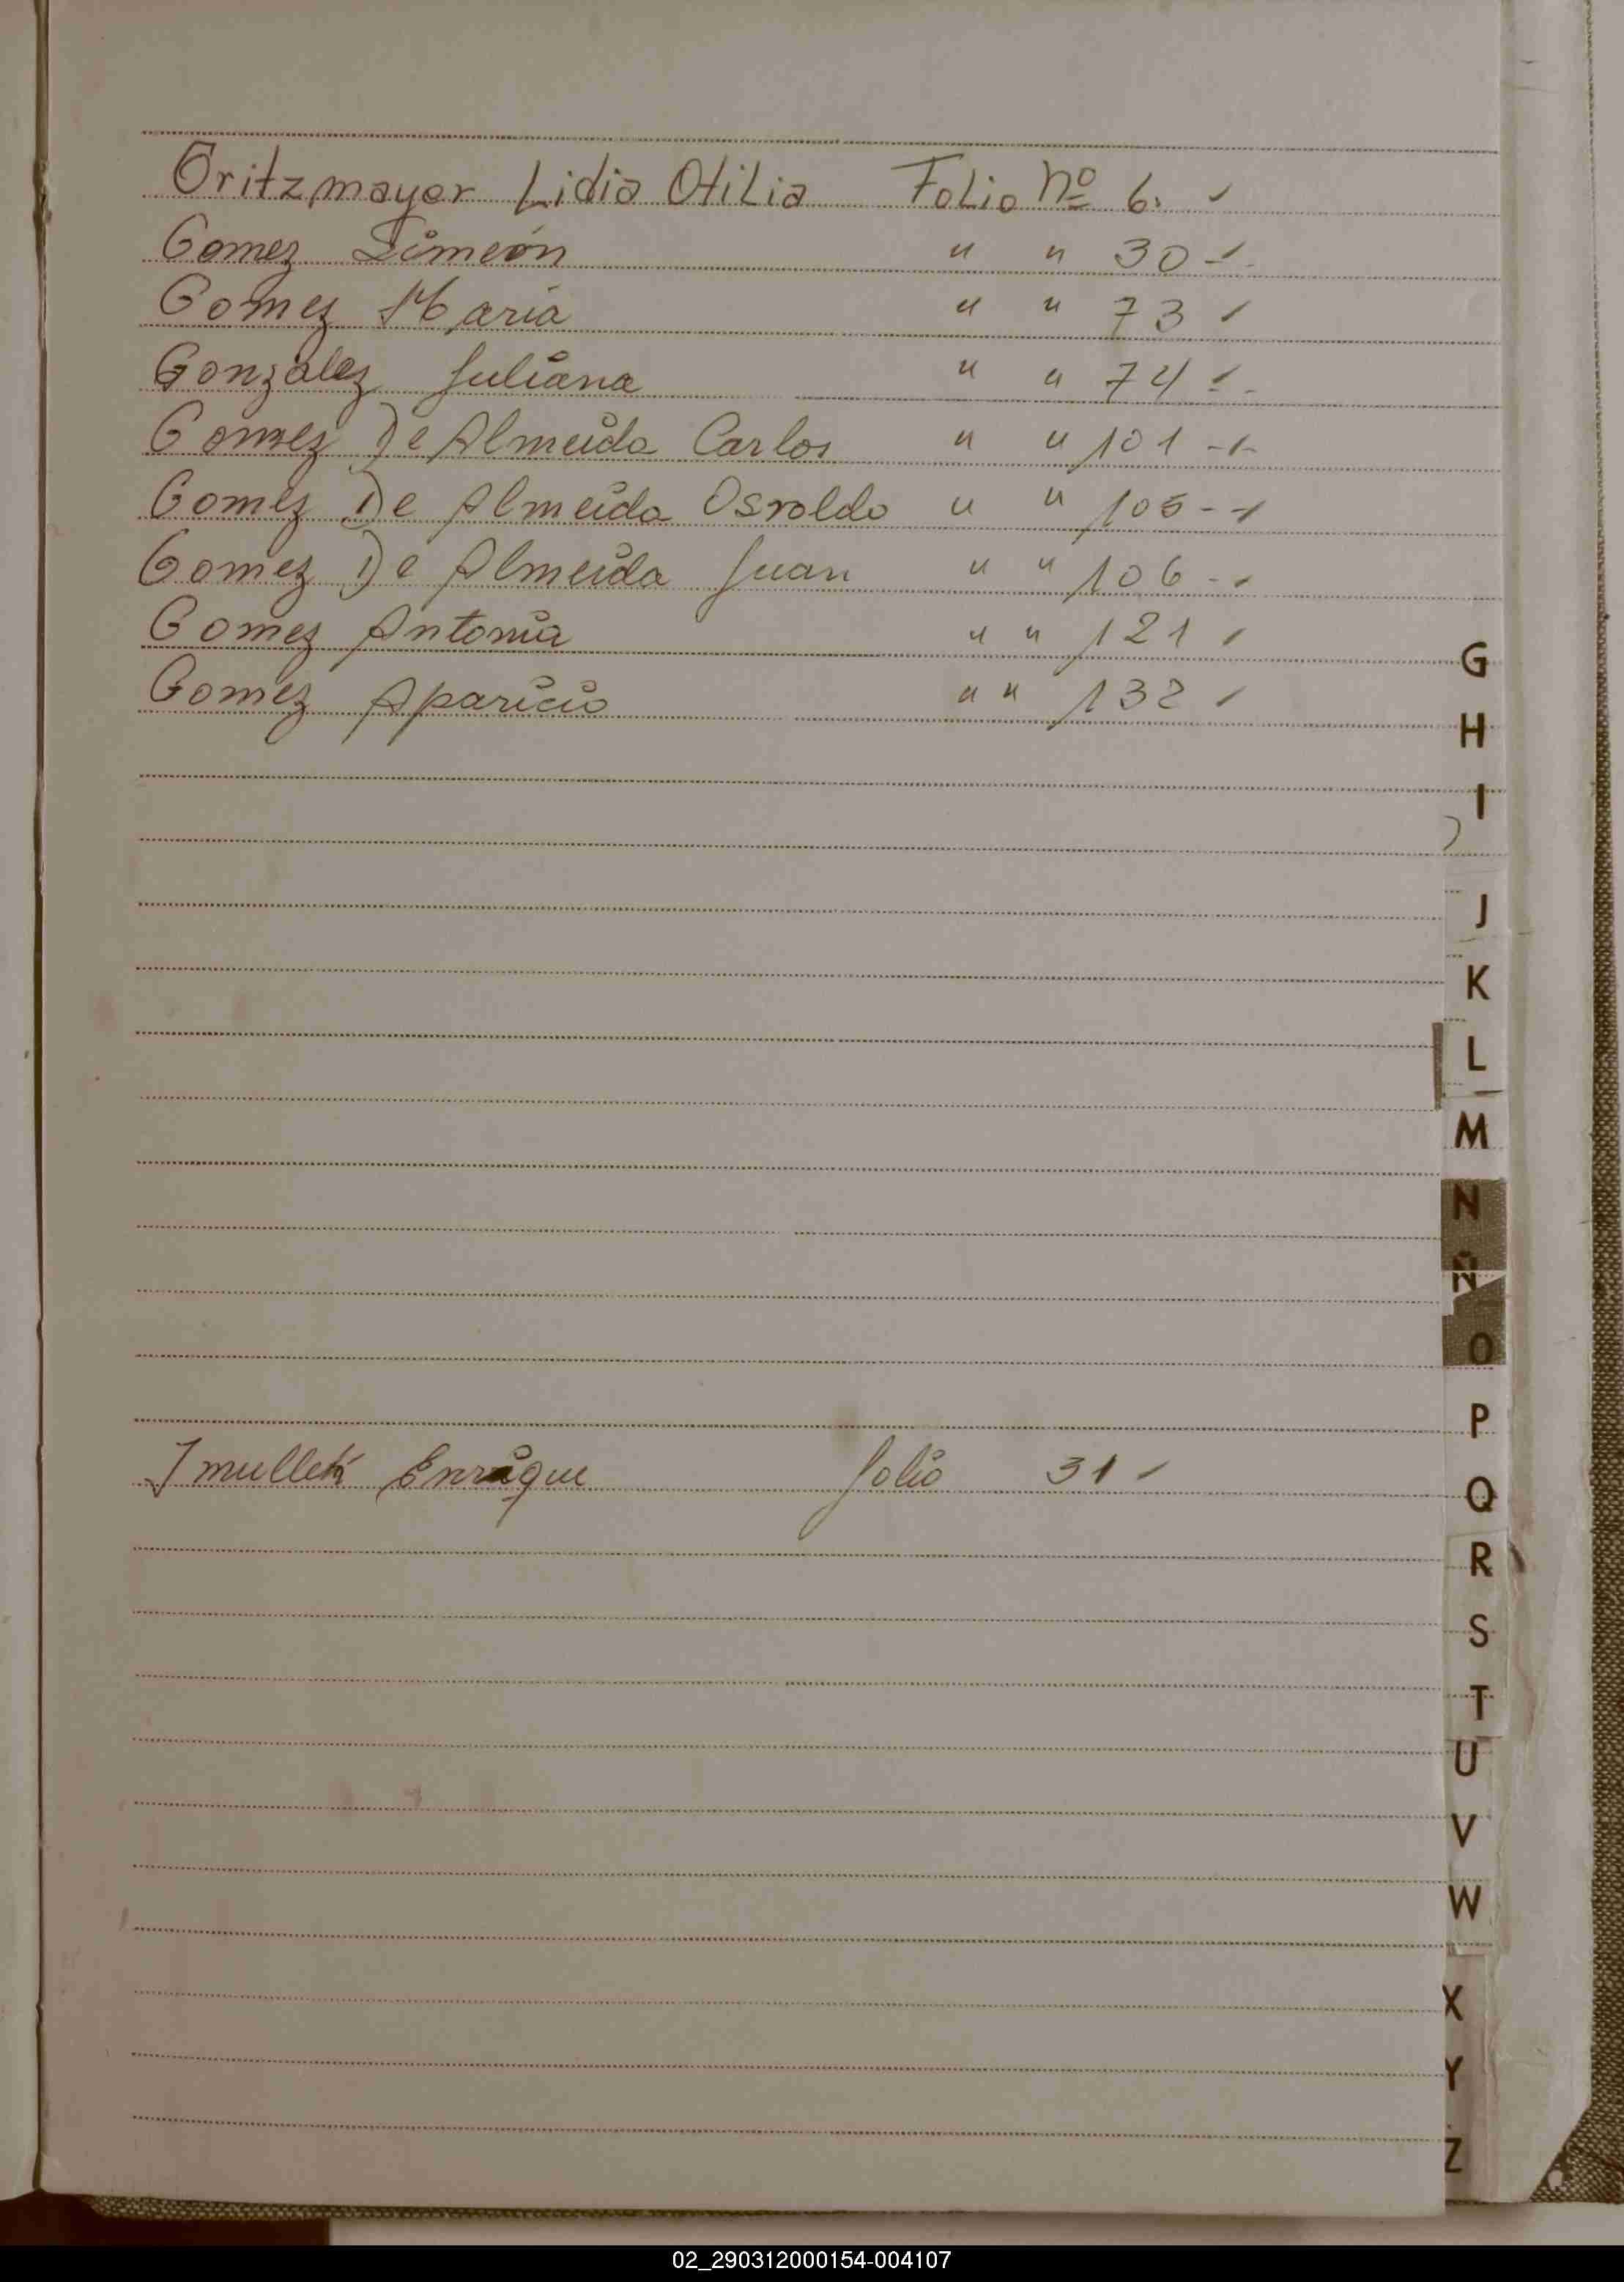 Gritzmayer Lidia Otilia Folio Nº 6.
Gomez Simeón " " 30 -
Gomez Maria " " 73
Gonzalez Juliana " " 74
Gomez De Almeida Carlos " " 101 -
Gomez De Almeida Osvaldo " " 105 -
Gomez De Almeida Juan " " 106 -
Gomez Antonia " " 121
Gomez Aparicio " " 132
G
H
I
J
K
L
M
N
Ñ
O
P
Enrique folio 31
Q
R
S
T
U
V
W
X
Y
Z
02_290312000154-004107